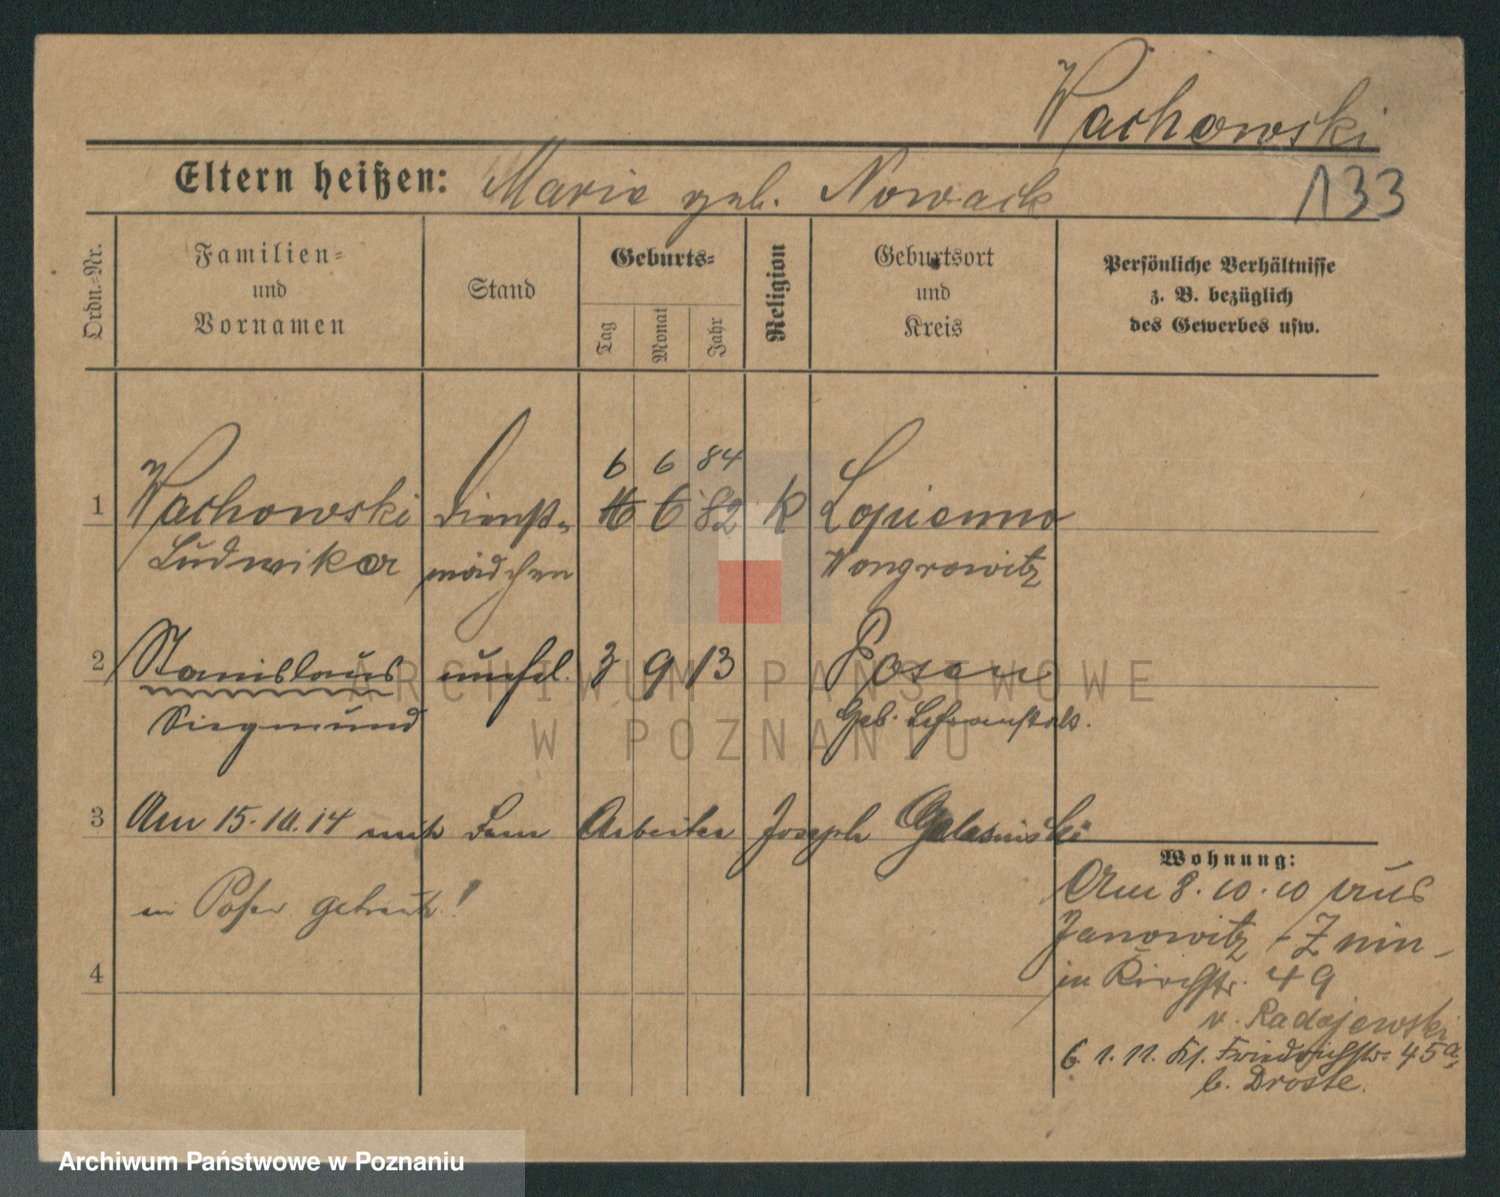 Wachowski
133
Eltern heißen: Marie geb. Nowack
Ordn.-Nr.
Familien-
und
Vornamen
Stand
Geburts-
Tag
Monat
Jahr
Religion
Geburtsort
und
Kreis
Persönliche Verhältnisse
z. B. bezüglich
des Gewerbes usw.
6 6 84
1 Wachowski Dienst- 16 6 82 K Lopienno
Ludwika mädchen Wongrowitz
2 Stanislaus unehel. 3 9 13 Posen
Siegmund Geb. Lehranstalt.
3 Am 15.10.14 mit dem Arbeiter Joseph
in Posen getraut!
4
Wohnung:
Am 8.10.10 aus
Janowitz - Znin -
in Kirchstr. 49
v. Radojewski
6.1.11. Kl. Friedrichstr. 45a,
b. Droste.
ARCHIWUM PAŃSTWOWE
W POZNANIU
Archiwum Państwowe w Poznaniu